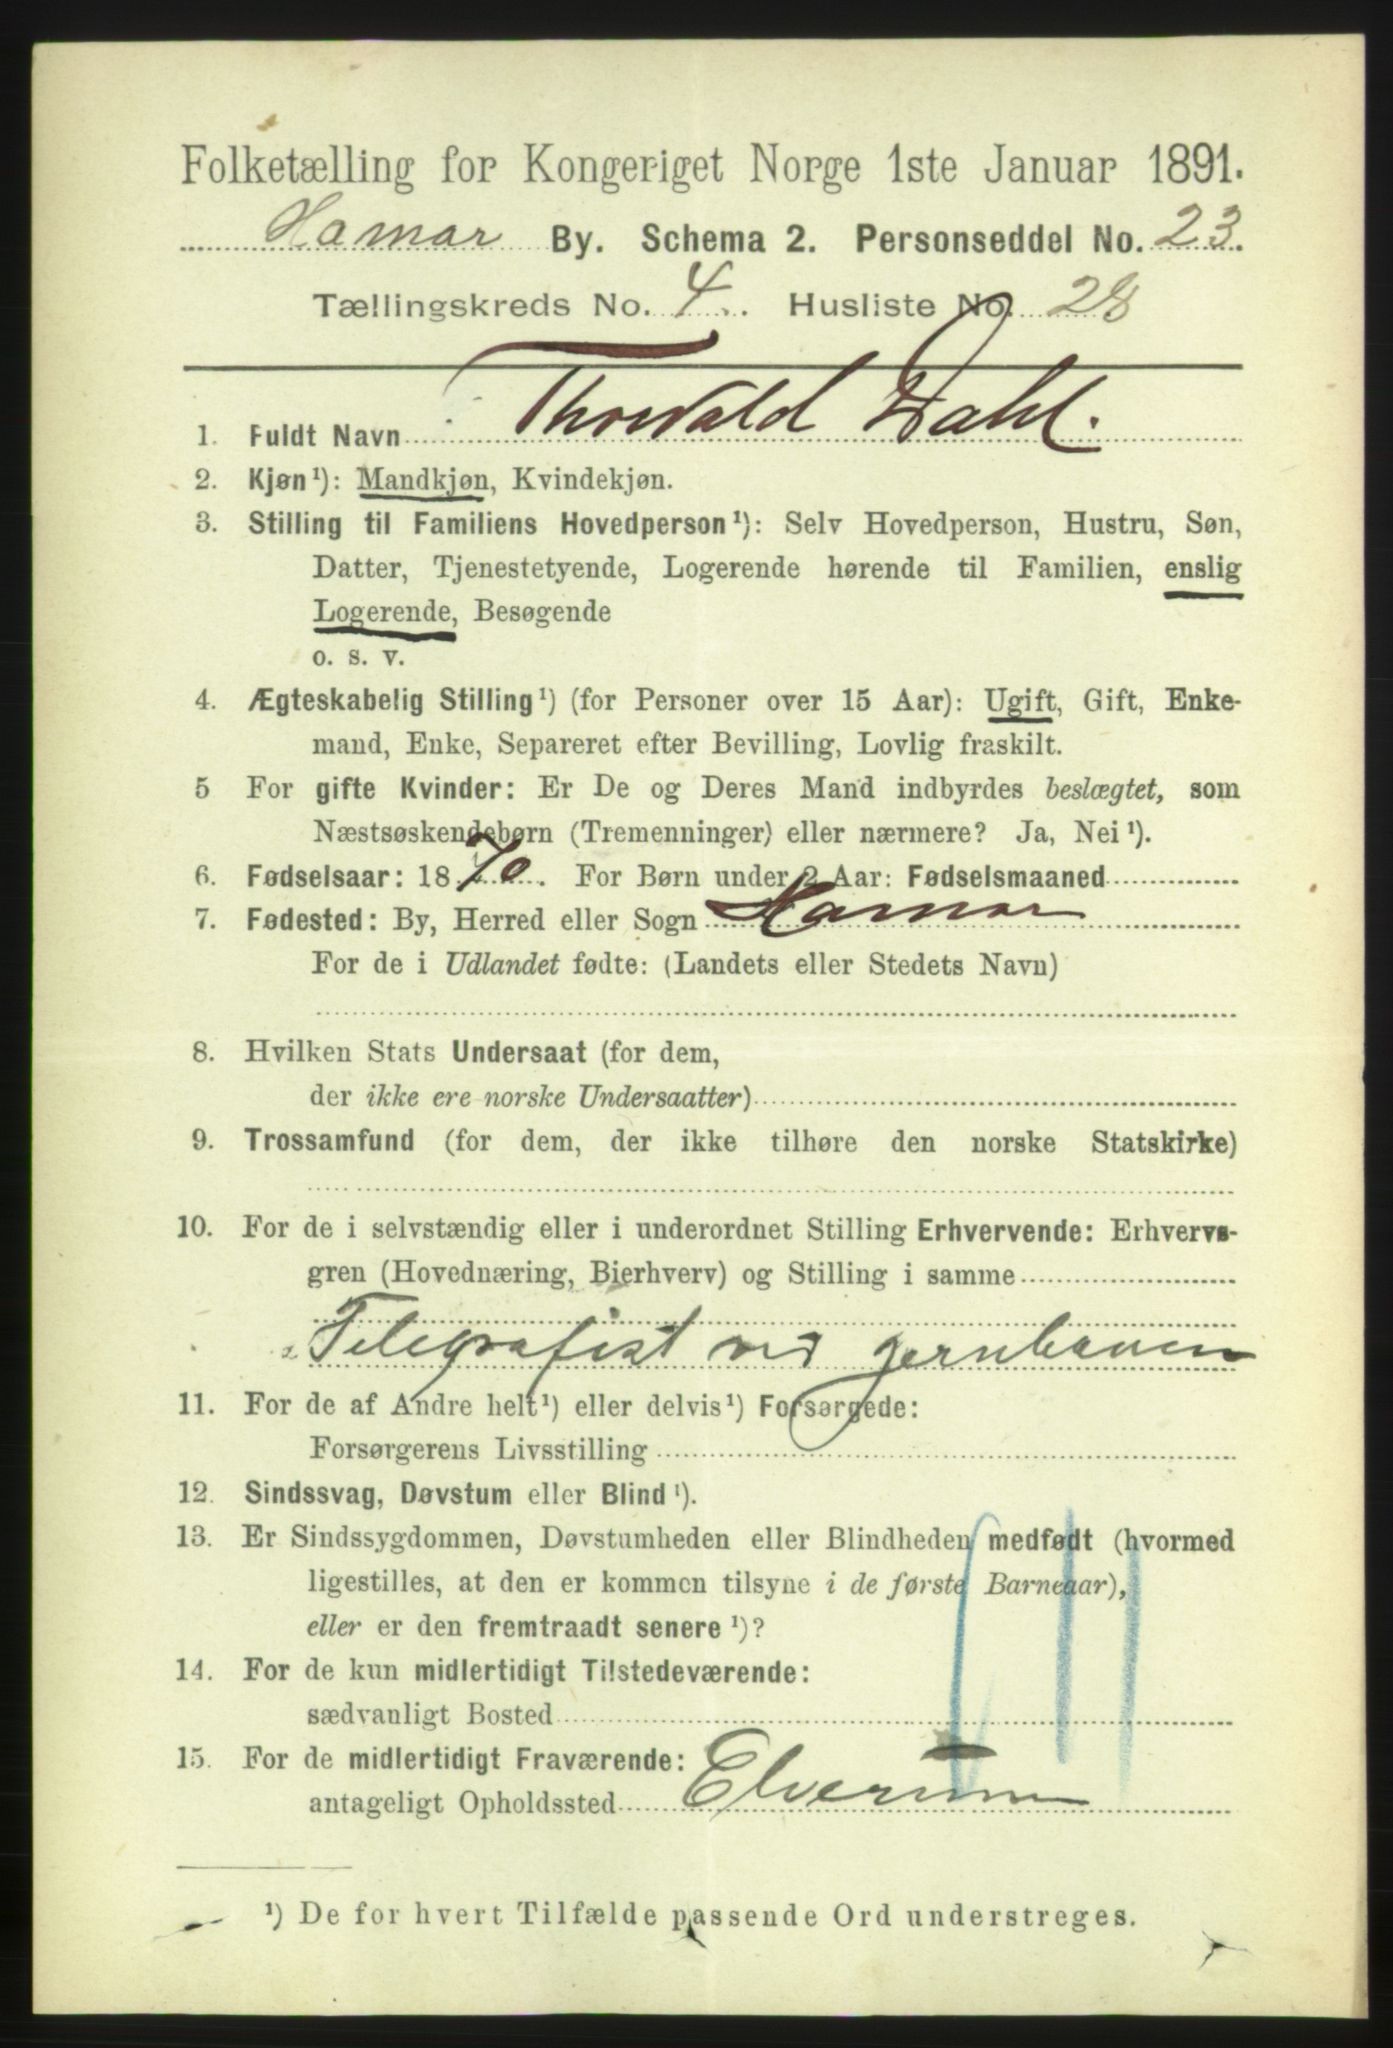 Folketælling for Kongeriget Norge 1ste Januar 1891.
Hamar By. Schema 2. Personseddel No. 23.
Tællingskreds No. 4. Husliste No. 28
1. Fuldt Navn Thorvald Dahl.
2. Kjøn¹): Mandkjøn, Kvindekjøn.
3. Stilling til Familiens Hovedperson¹): Selv Hovedperson, Hustru, Søn,
Datter, Tjenestetyende, Logerende hørende til Familien, enslig
Logerende, Besøgende
o. s. v.
4. Ægteskabelig Stilling¹) (for Personer over 15 Aar): Ugift, Gift, Enke-
mand, Enke, Separeret efter Bevilling, Lovlig fraskilt.
5 For gifte Kvinder: Er De og Deres Mand indbyrdes beslægtet, som
Næstsøskendebørn (Tremenninger) eller nærmere? Ja, Nei¹).
6. Fødselsaar: 1870. For Børn under 2 Aar: Fødselsmaaned
7. Fødested: By, Herred eller Sogn Hamar
For de i Udlandet fødte: (Landets eller Stedets Navn)
8. Hvilken Stats Undersaat (for dem,
der ikke ere norske Undersaatter)
9. Trossamfund (for dem, der ikke tilhøre den norske Statskirke)
10. For de i selvstændig eller i underordnet Stilling Erhvervende: Erhvervs-
gren (Hovednæring, Bierhverv) og Stilling i samme
Telegrafist ved jernbanen
11. For de af Andre helt¹) eller delvis¹) Forsørgede:
Forsørgerens Livsstilling
12. Sindssvag, Døvstum eller Blind¹).
13. Er Sindssygdommen, Døvstumheden eller Blindheden medfødt (hvormed
ligestilles, at den er kommen tilsyne i de første Barneaar),
eller er den fremtraadt senere¹)?
14. For de kun midlertidigt Tilstedeværende:
sædvanligt Bosted
15. For de midlertidigt Fraværende:
antageligt Opholdssted Elverum
¹) De for hvert Tilfælde passende Ord understreges.